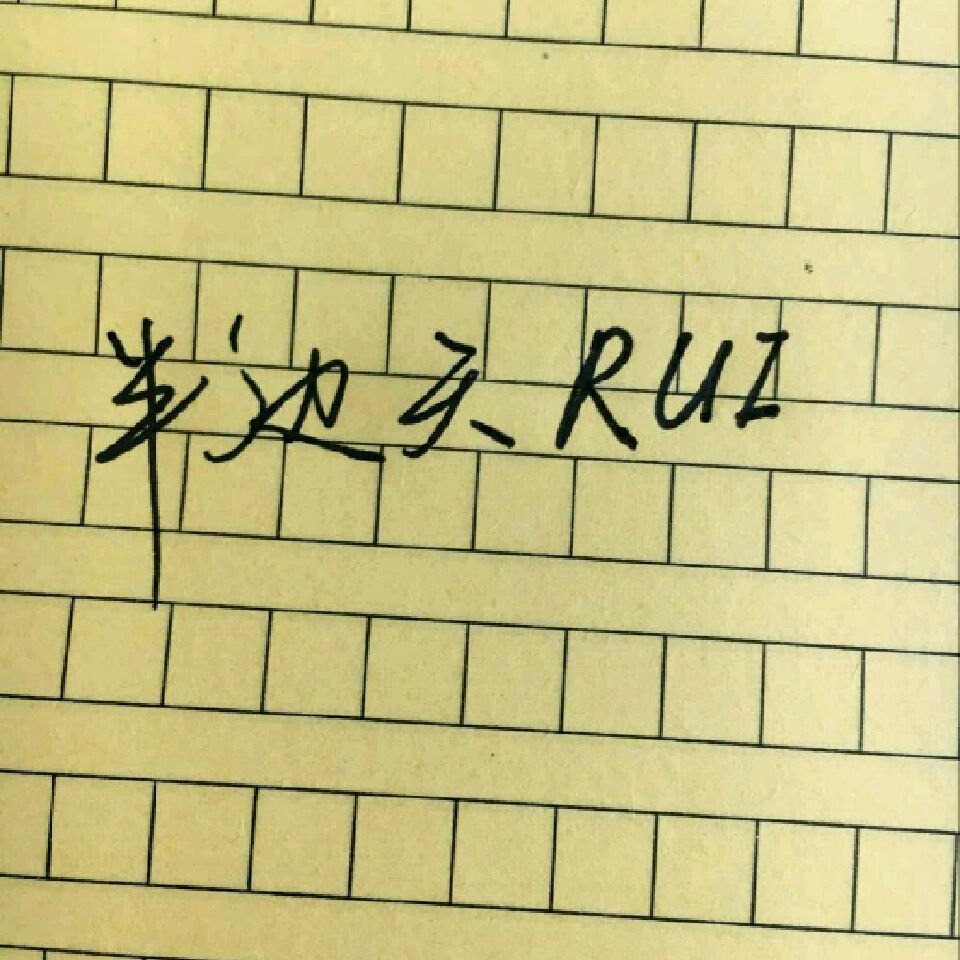 半边头RUI